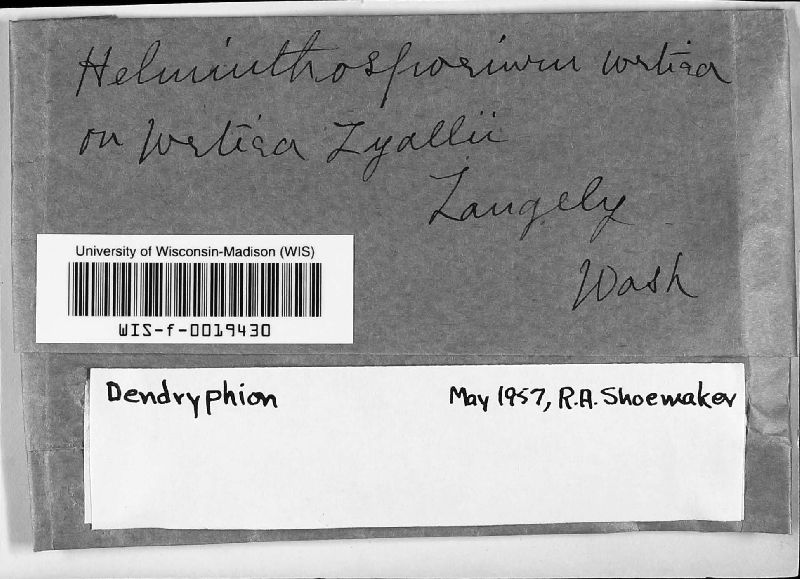 Helminthosporium urtica
on Urtica Lyallii
Langely
Wash
University of Wisconsin-Madison (WIS)
WIS-f-0019430
Dendryphion May 1957, R.A. Shoemaker